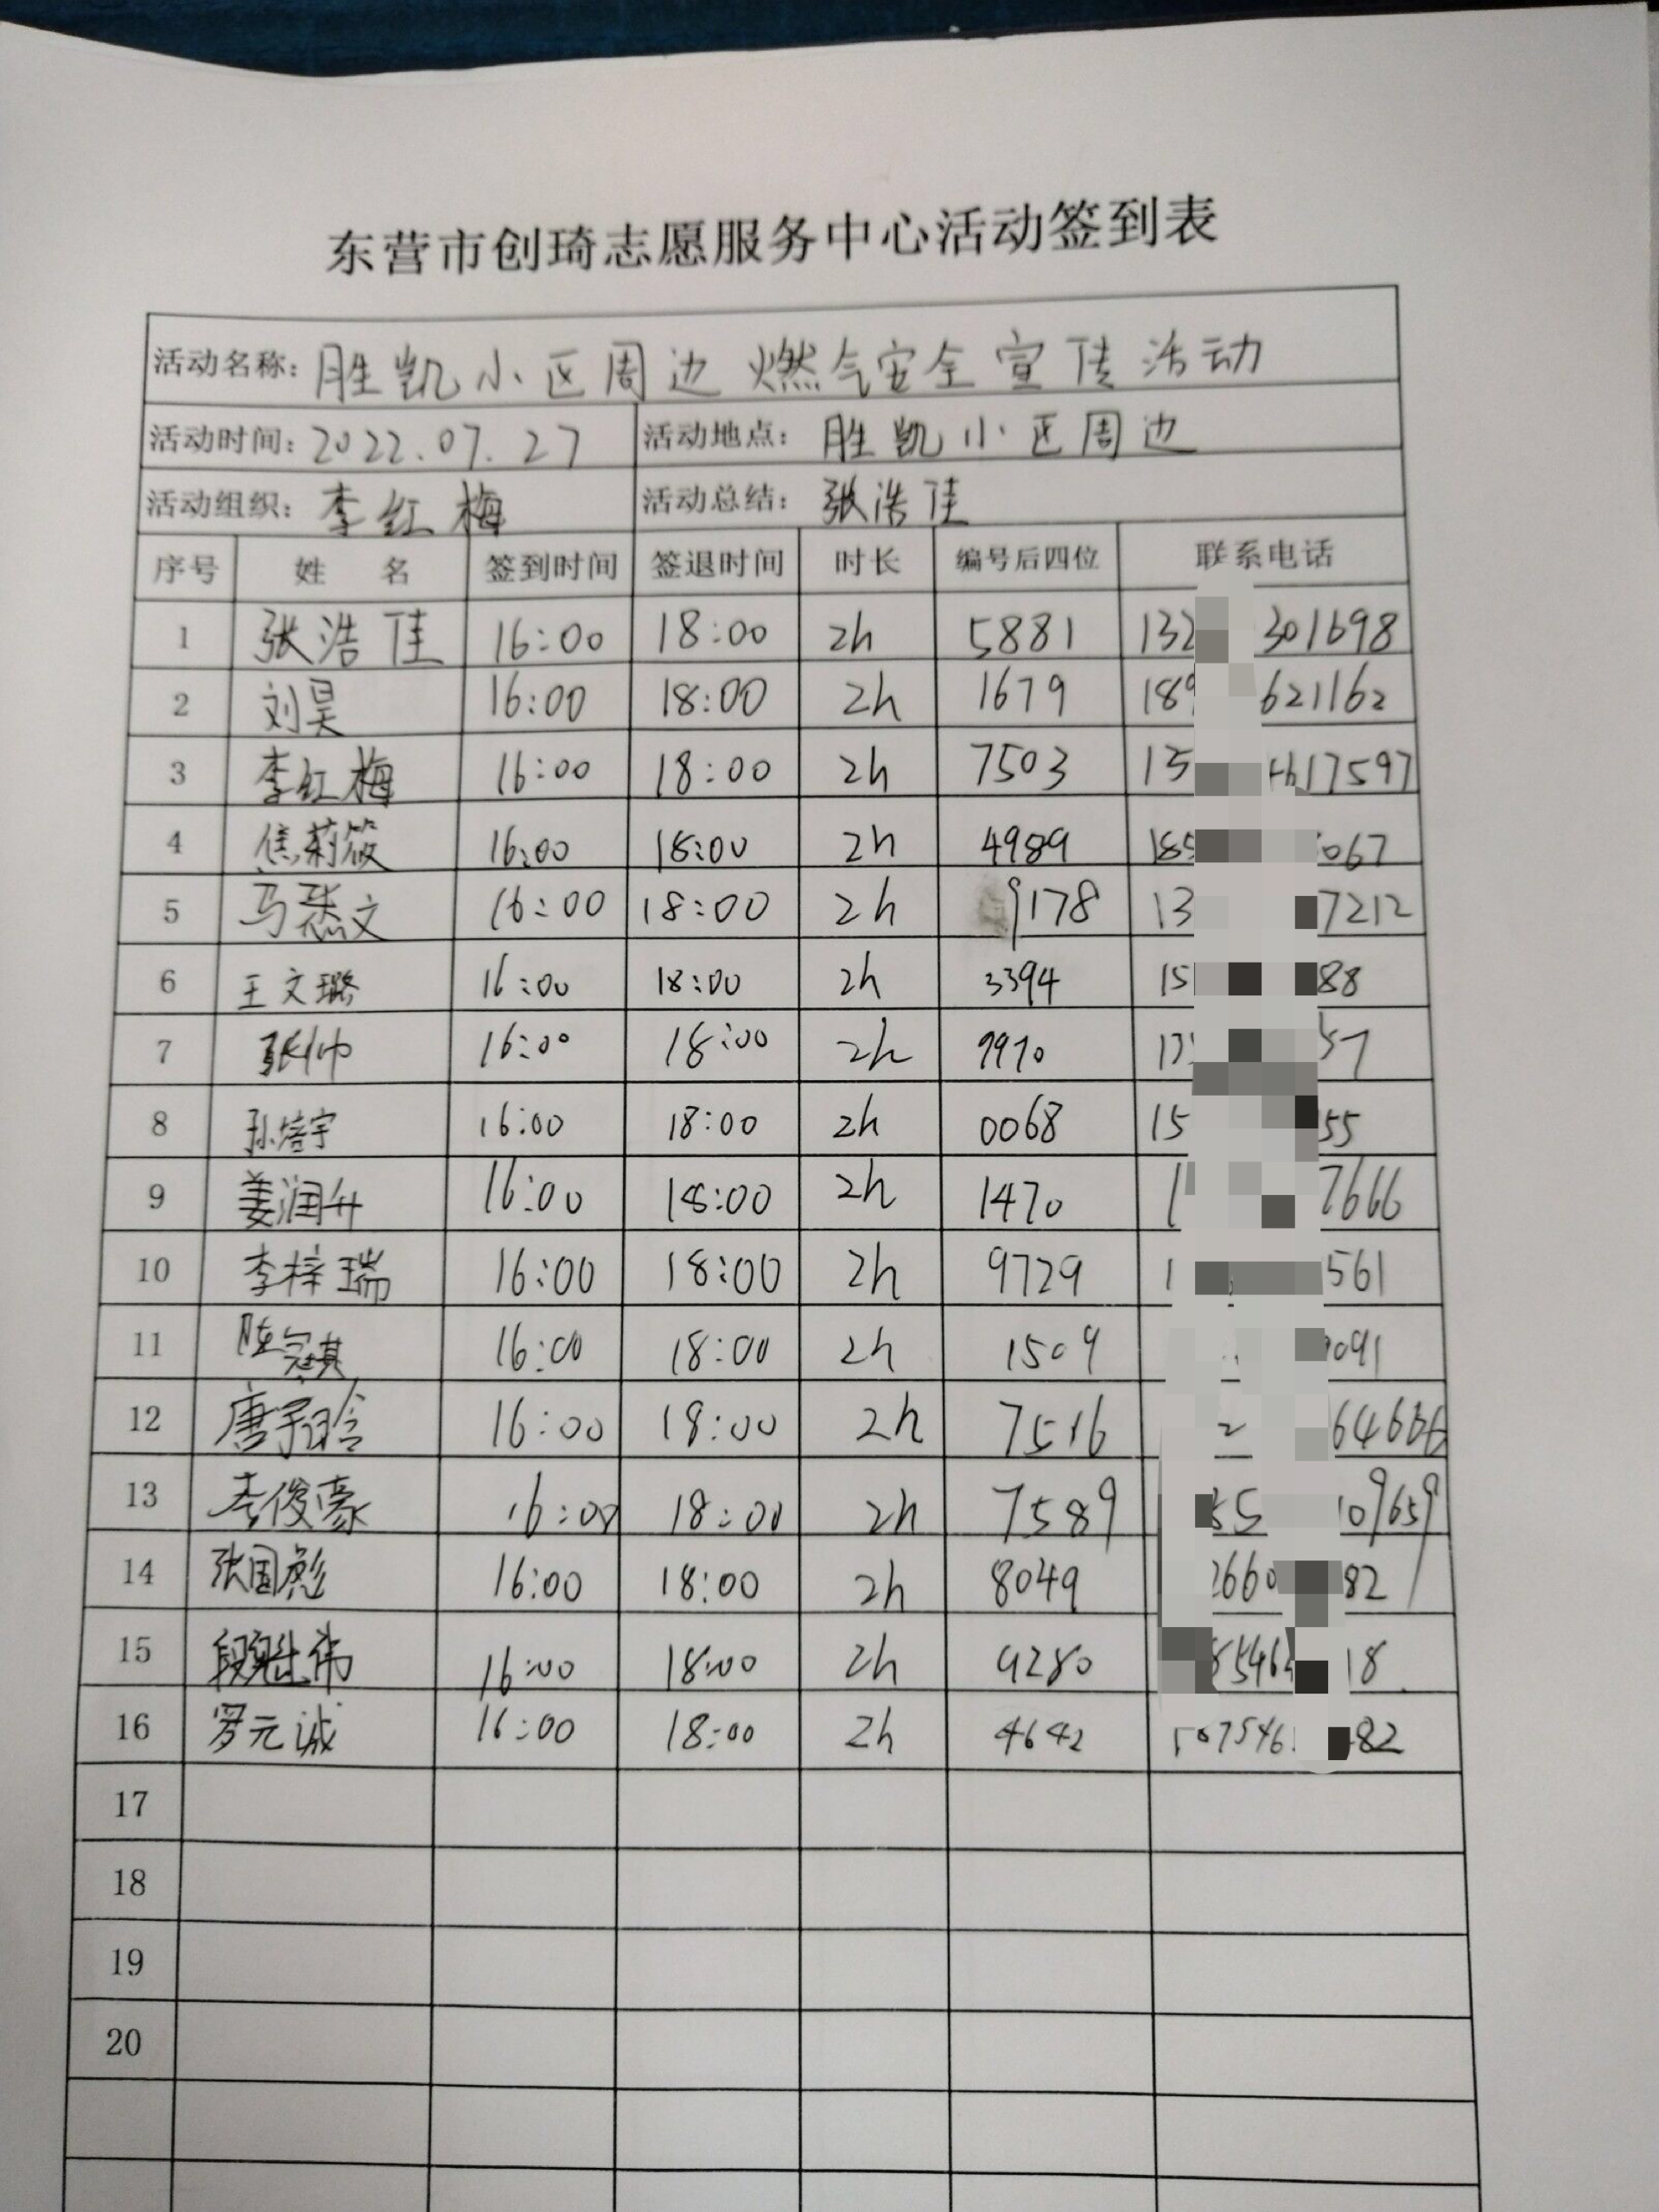 东营市创琦志愿服务中心活动签到表
活动名称: 胜凯小区周边燃气安全宣传活动
活动时间: 2022.07.27 活动地点: 胜凯小区周边
活动组织: 李红梅 活动总结: 张浩佳
序号 姓 名 签到时间 签退时间 时长 编号后四位 联系电话
1 张浩佳 16:00 18:00 2h 5881 132 301698
2 刘昊 16:00 18:00 2h 1679 189 621162
3 李红梅 16:00 18:00 2h 7503 17597
4 焦莉筱 16:00 18:00 2h 4989 185 067
5 马 文 16:00 18:00 2h 9178 13 7212
6 王文璐 16:00 18:00 2h 3394 15 88
7 张帅 16:00 18:00 2h 9970 57
8 孙 宇 16:00 18:00 2h 0068 15 55
9 姜润升 16:00 18:00 2h 1470 1 7666
10 李梓瑞 16:00 18:00 2h 9729 1 561
11 陈 16:00 18:00 2h 1509 091
12 唐 16:00 18:00 2h 7516 2
13 李俊豪 16:00 18:00 2h 7589 109659
14 张国彪 16:00 18:00 2h 8049 2660 82
15 段魁伟 16:00 18:00 2h 9280 8546 18
16 罗元诚 16:00 18:00 2h 4642 7546 82
17
18
19
20